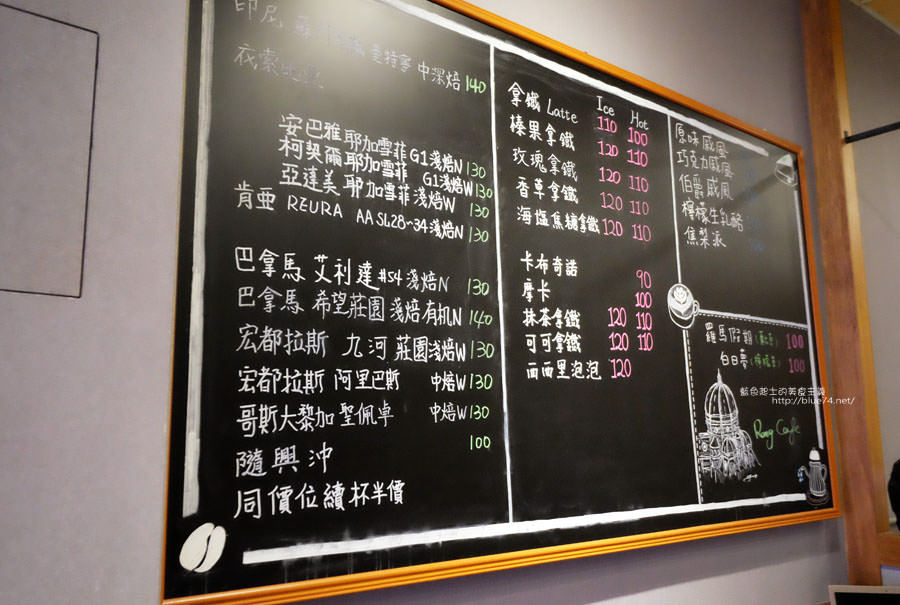 印尼 曼特寧 中深焙 140
衣索比亞
安巴雅 耶加雪菲 G1淺焙N 130
柯契爾 耶加雪菲 G1淺焙W 130
亞達美 耶加雪菲 淺焙W 130
肯亞 RZURA AA SL28~34 淺焙N 130
巴拿馬 艾利達 #54 淺焙N 130
巴拿馬 希望莊園 淺焙有机N 140
宏都拉斯 九河莊園 淺焙W 130
宏都拉斯 阿里巴斯 中焙W 130
哥斯大黎加 聖佩卓 中焙W 130
隨興沖 100
同價位續杯半價
Ice Hot
拿鐵 Latte 110 100
榛果拿鐵 120 110
玫瑰拿鐵 120 110
香草拿鐵 120 110
海塩焦糖拿鐵 120 110
卡布奇諾 90
摩卡 100
抹茶拿鐵 120 110
可可拿鐵 120 110
西西里泡泡 120
原味戚風
巧克力戚風
伯爵戚風
檸檬生乳酪
焦梨派
羅馬假期 100
白日夢 100
藍色起士的美食主義
http://blue74.net/
Rory Cafe